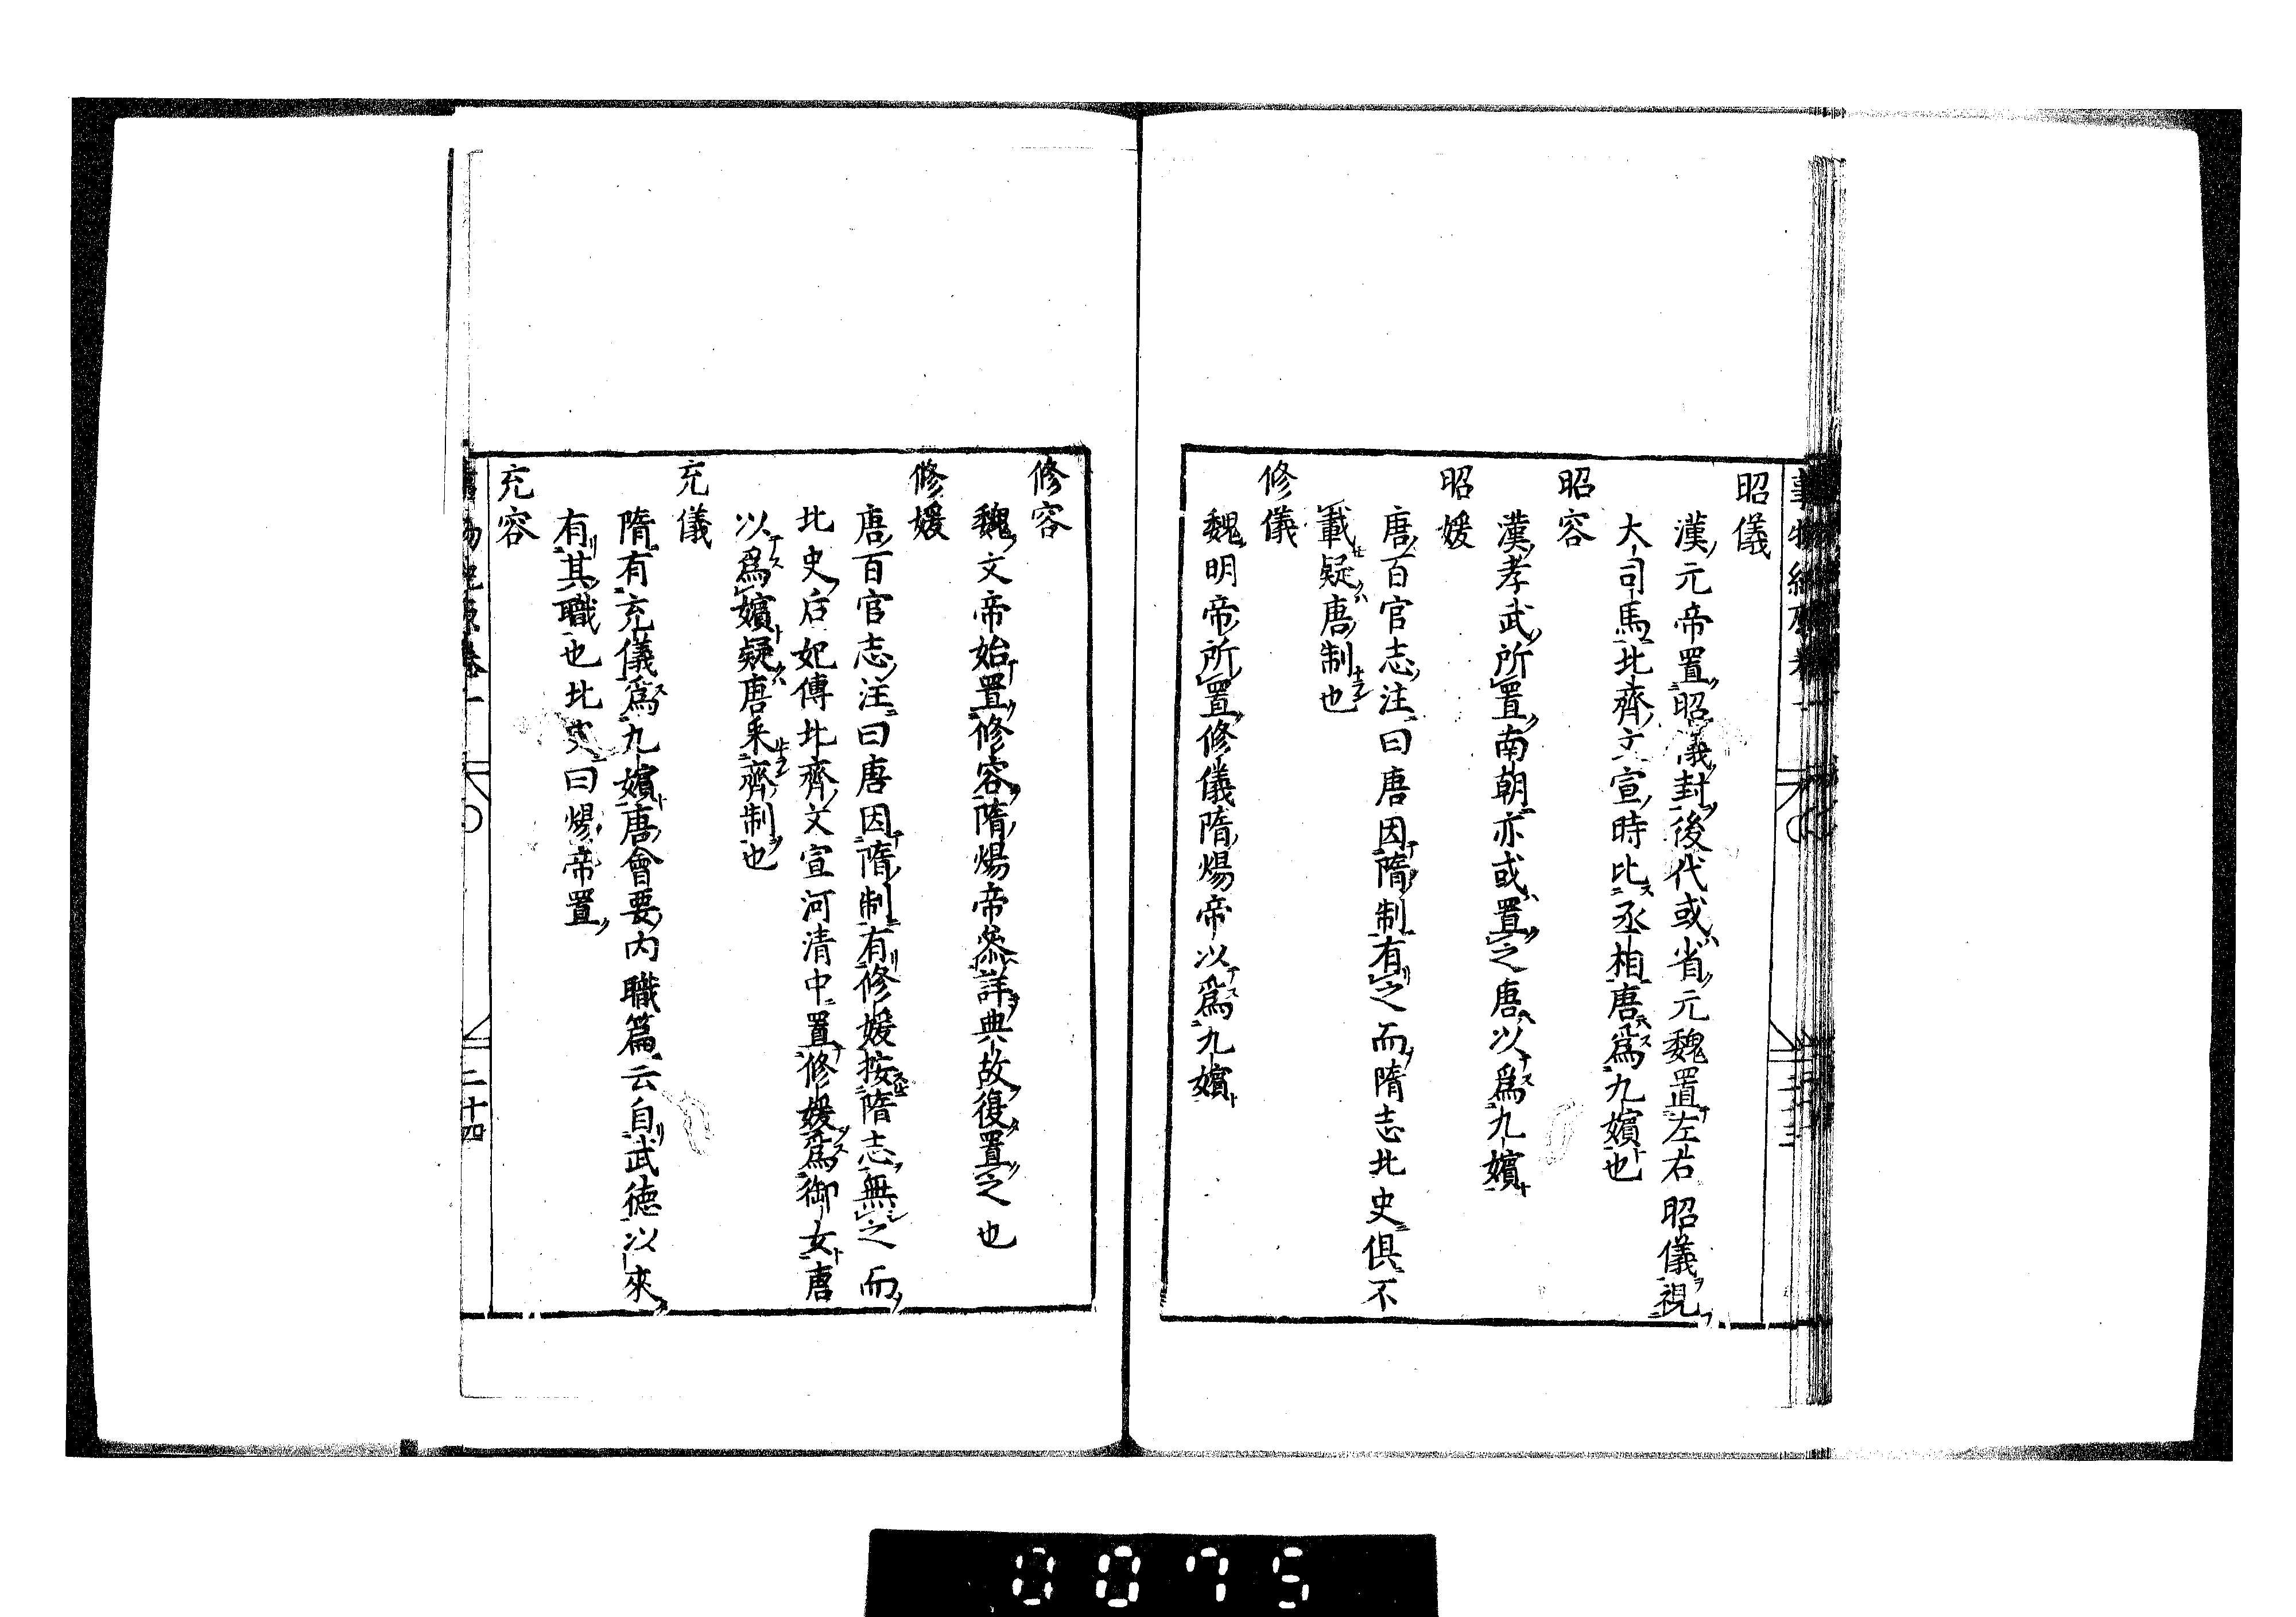 昭儀
漢元帝置昭儀封後代或省元魏置左右昭儀視
大司馬北齊文宣時比丞相唐爲九嬪也
昭容
漢孝武所置南朝亦或置之唐以爲九嬪
昭媛
唐百官志注曰唐因隋制有之而隋志北史俱不
載疑唐制也
修儀
魏明帝所置修儀隋煬帝以爲九嬪
修容
魏文帝始置修容隋煬帝參詳典故復置之也
修媛
唐百官志注曰唐因隋制有修媛按隋志無之而
北史后妃傳北齊文宣河清中置修媛爲御女唐
以爲嬪疑唐采齊制也
充儀
隋有充儀爲九嬪唐會要内職篇云自武德以來
有其職也北史曰煬帝置
充容
二十四
0075